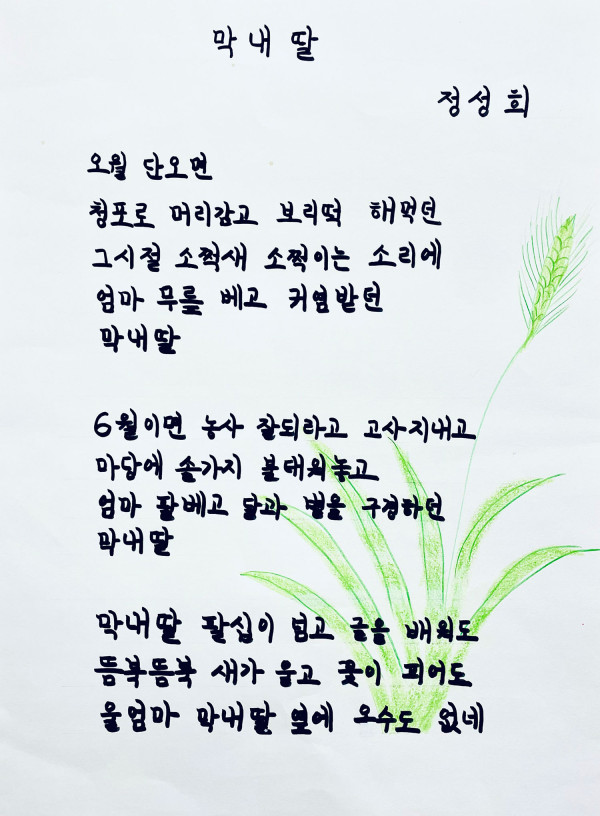 막내딸
정성희
오월 단오면
청포로 머리감고 보리떡 해먹던
그시절 소쩍새 소쩍이는 소리에
엄마 무릎 베고 귀염받던
막내딸
6월이면 농사 잘되라고 고사지내고
마당에 솔가지 불태워놓고
엄마 팔베고 달과 별을 구경하던
막내딸
막내딸 팔십이 넘고 글을 배워도
뜸북뜸북 새가 울고 꽃이 피어도
울엄마 막내딸 옆에 오수도 없네